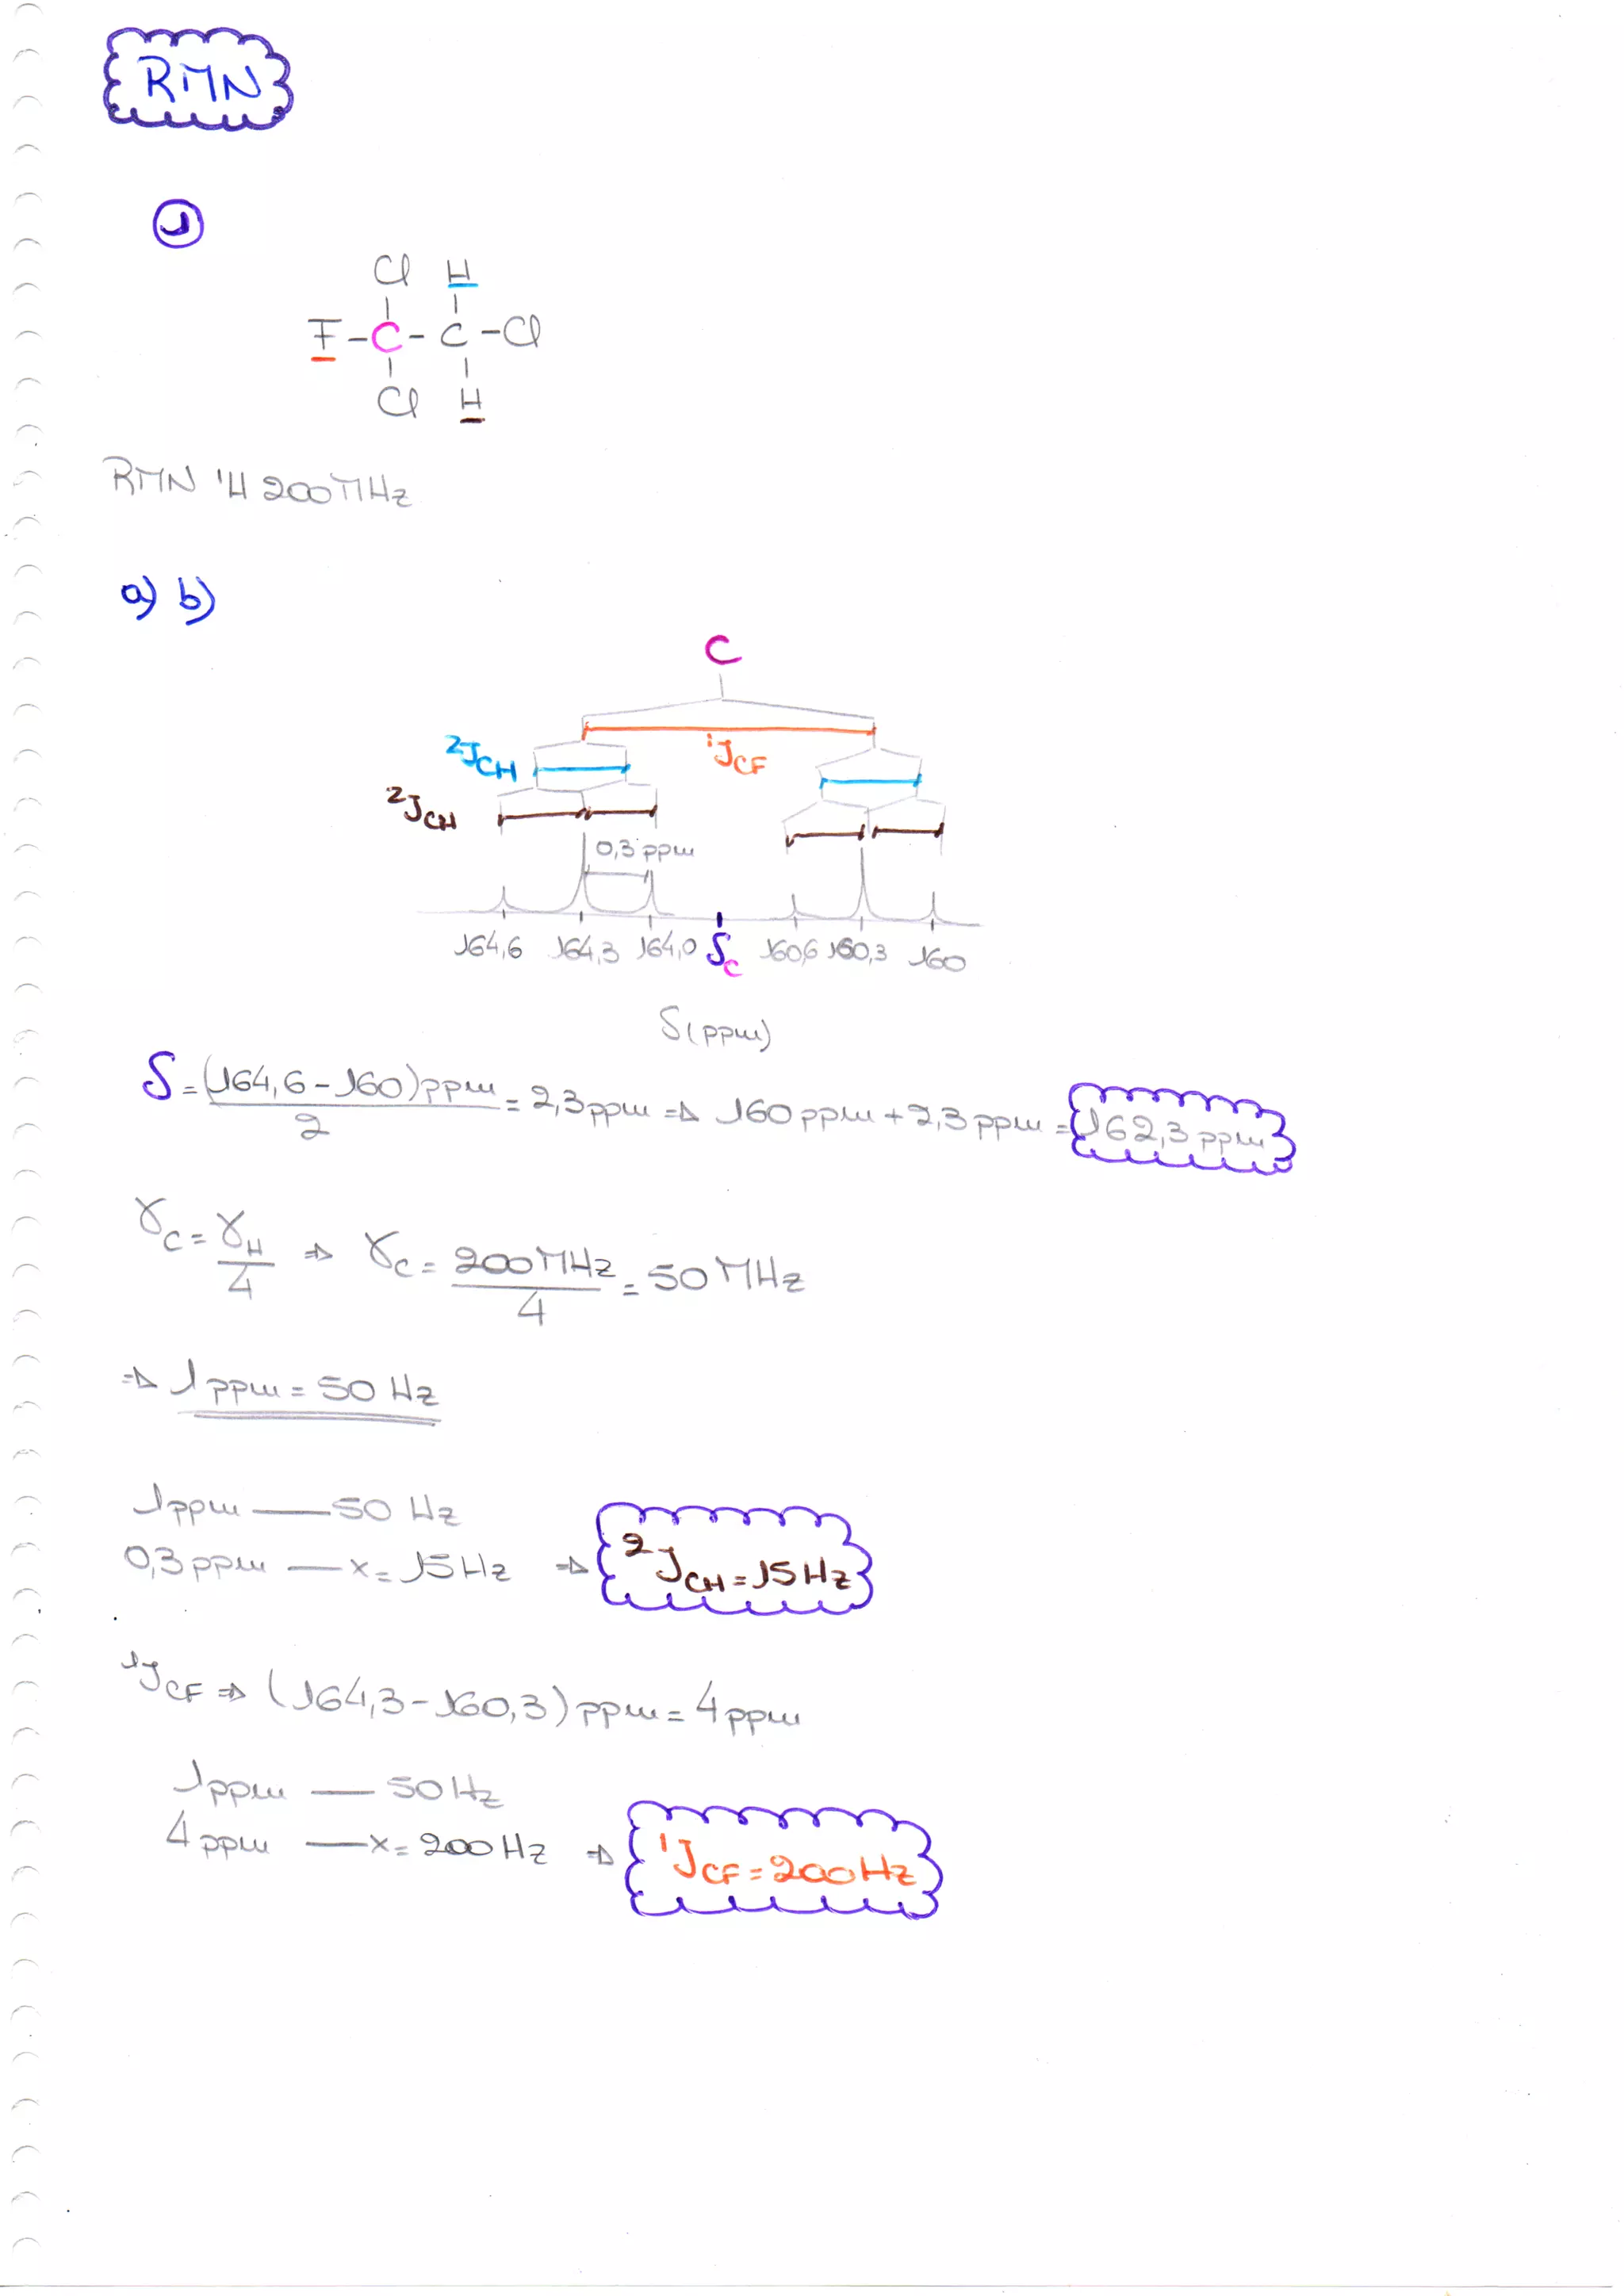 RMN
1
Cl H
F-C-C-Cl
Cl H
RMN ¹H 200MHz
a) b)
C
²JCH ¹JCF
²JCH
0,3 ppm
164,6 164,3 164,0 δC 160,6 160,3 160
δ(ppm)
δ = (164,6 - 160)ppm / 2 = 2,3ppm ⇒ 160ppm + 2,3ppm = 162,3 ppm
γC = γH / 4 ⇒ γC = 200MHz / 4 = 50MHz
⇒ 1ppm = 50 Hz
1ppm — 50 Hz
0,3ppm — x = 15Hz ⇒ ²JCH = 15Hz
¹JCF ⇒ (164,3 - 160,3)ppm = 4ppm
1ppm — 50Hz
4ppm — x = 200Hz ⇒ ¹JCF = 200Hz